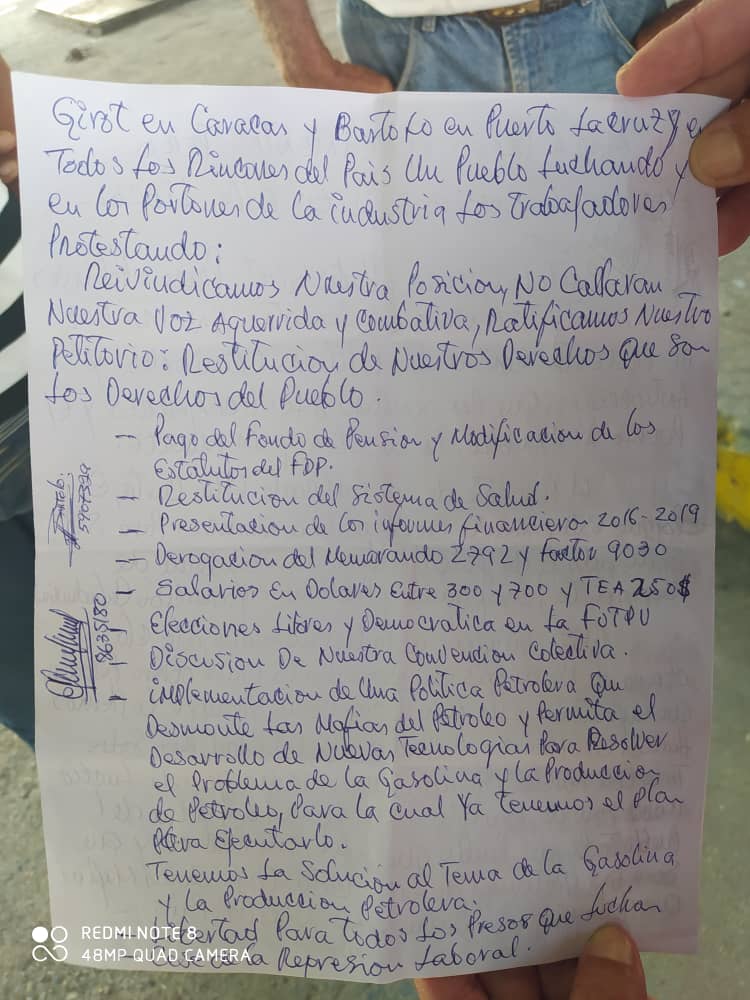 Girot en Caracas y Bartolo en Puerto La cruz y en
Todos Los Rincones del Pais Un Pueblo Luchando y
en los Portones de la industria Los Trabajadores
Protestando:
Reivindicamos Nuestra Posicion, No Callaran
Nuestra Voz Aguerrida y Combativa, Ratificamos Nuestro
Petitorio: Restitucion de Nuestros Derechos Que Son
Los Derechos del Pueblo.
- Pago del Fondo de Pension y Modificacion de los
Estatutos del FDP.
- Restitucion del Sistema de Salud.
- Presentacion de los informes financieros 2016-2019
- Derogacion del Memorando 2792 y Factor 9030
- Salarios En Dolares Entre 300 y 700 y TEA 250$
- Elecciones Libres y Democratica en La FUTPV
- Discusion De Nuestra Convencion Colectiva.
- implementacion de Una Politica Petrolera Que
Desmonte Las Mafias del Petroleo y Permita el
Desarrollo de Nuevas Tecnologias Para Resolver
el Problema de la Gasolina y la Produccion
de Petroleo, Para la cual Ya tenemos el Plan
Para Ejecutarlo.
Tenemos La Solucion al Tema de la Gasolina
y La Produccion Petrolera.
- Libertad Para Todos Los Presos Que Luchan
- la Represion Laboral.
8635180
REDMI NOTE 8
48MP QUAD CAMERA